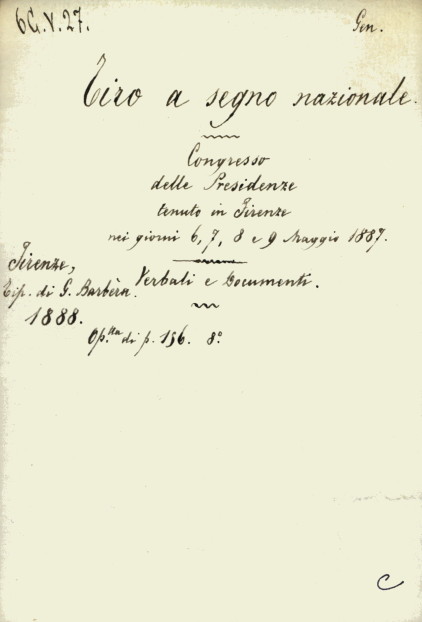 6G.V.27.
Gen.
Tiro a segno nazionale.
Congresso
delle Presidenze
tenuto in Firenze
nei giorni 6, 7, 8 e 9 Maggio 1887.
Verbali e Documenti.
Firenze,
Tip. di G. Barbèra.
1888.
Op.tta di p. 156. 8º.
C